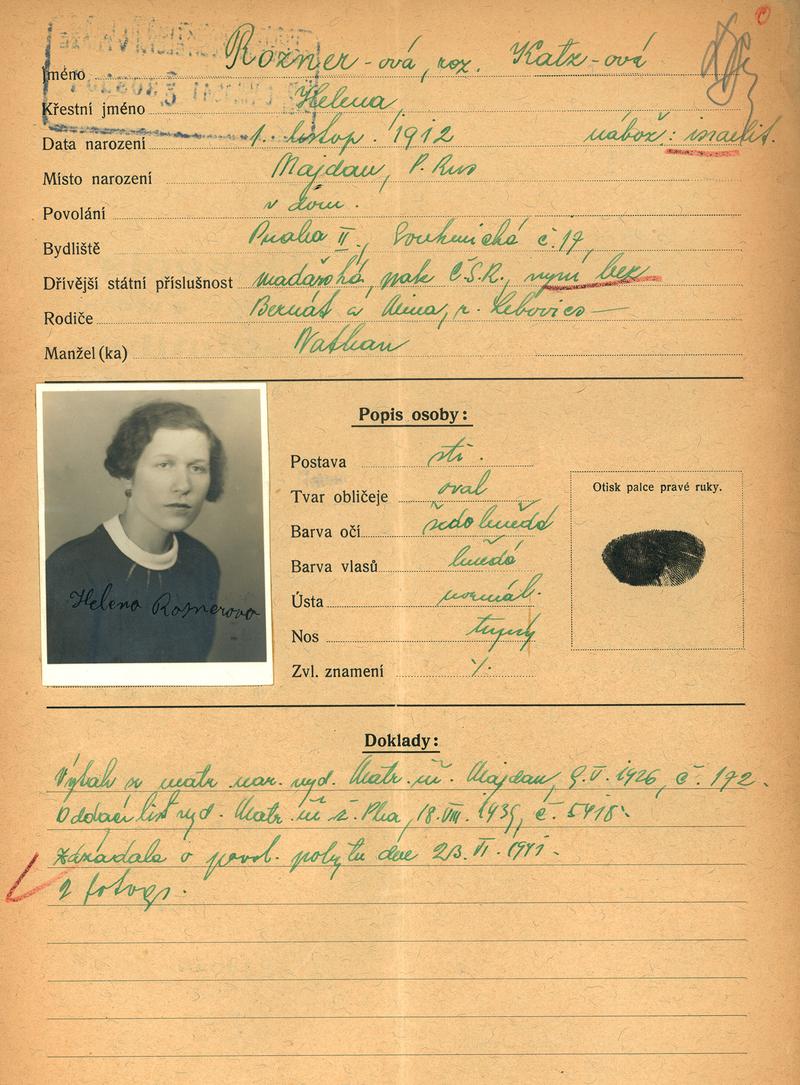 Jméno Rozner-ová, roz. Katz-ová
Křestní jméno Helena
Data narození 1. listop. 1912 nábož: israelit.
Místo narození Majdan, P. Rus
Povolání v dom.
Bydliště Praha II., Soukenická č. 17,
Dřívější státní příslušnost maďarská, pak Č.S.R., nyní bez
Rodiče Bernát a r. Lebovics
Manžel (ka) Nathan
Popis osoby:
Postava stř.
Tvar obličeje oval
Otisk palce pravé ruky.
Barva očí šedohnědé
Barva vlasů hnědé
Ústa normál.
Nos tupý
Zvl. znamení ·/.
Helena Roznerova
Doklady:
Výtah z matr. nar. vyd. Matr. úř. Majdan, 9.V. 1926, č. 172.
Oddací list vyd. Matr. úř. ž. Pha, 18.VIII. 1939, č. 5418.
Zažádala o povol. pobytu dne 23. VI. 1941.
2 fotogr.